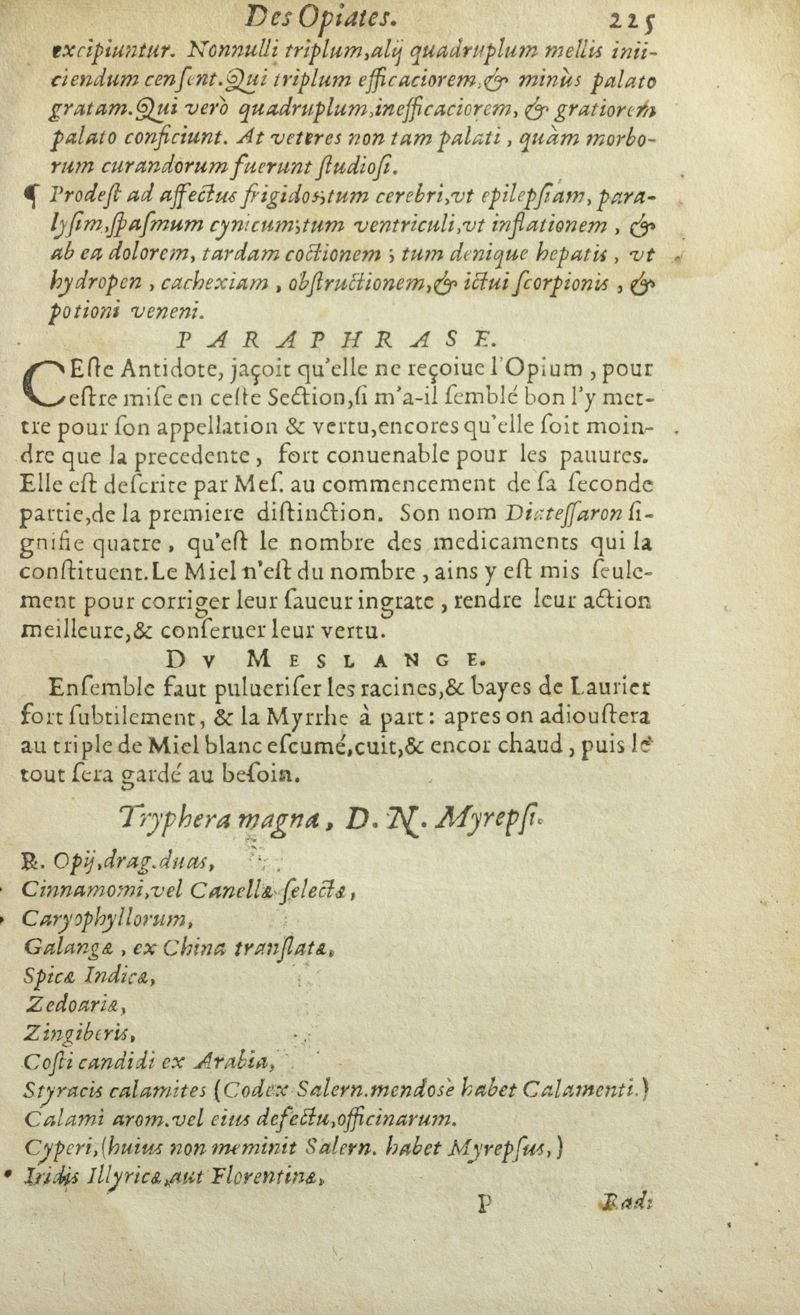 Des Opiates. 225
excipiuntur. Nonnulli triplum,alij quadruplum mellis inii-
ciendum censent.Qui triplum efficaciorem,& minùs palato
gratam.Qui verò quadruplum,inefficaciorem, & gratiorem
palato conficiunt. At veteres non tam palati, quàm morbo-
rum curandorum fuerunt studiosi.
¶ Prodest ad affectus frigidos,tum cerebri,vt epilepsiam, para-
lysim,spasmum cynicum;tum ventriculi,vt inflationem , &
ab ea dolorem, tardam coctionem ; tum denique hepatis , vt
hydropen , cachexiam , obstructionem,& ictui scorpionis , &
potioni veneni.
PARAPHRASE.
CEste Antidote, jaçoit qu'elle ne reçoiue l'Opium , pour
estre mise en ceste Section,si m'a-il semblé bon l'y met-
tre pour son appellation & vertu,encores qu'elle soit moin-
dre que la precedente , fort conuenable pour les pauures.
Elle est descrite par Mes. au commencement de sa seconde
partie,de la premiere distinction. Son nom Diatessaron si-
gnifie quatre , qu'est le nombre des medicaments qui la
constituent.Le Miel n'est du nombre , ains y est mis seule-
ment pour corriger leur saueur ingrate , rendre leur action
meilleure,& conseruer leur vertu.
Dv MESLANGE.
Ensemble faut puluerifer les racines,& bayes de Laurier
fort subtilement, & la Myrrhe à part: apres on adioustera
au triple de Miel blanc escumé,cuit,& encor chaud , puis le
tout sera gardé au besoin.
Tryphera magna , D. N. Myrepsi.
℞. Opij,drag.duas,
Cinnamomi,vel Canellæ selectæ,
Caryophyllorum,
Galangæ , ex China translatæ,
Spicæ Indicæ,
Zedoariæ,
Zingiberis,
Costi candidi ex Arabia,
Styracis calamites (Codex Salern.mendosè habet Calamenti.)
Calami arom.vel eius defectu,officinarum.
Cyperi,(huius non meminit Salern. habet Myrepsus,)
Iridis Illyricæ,aut Florentinæ,
P Radi